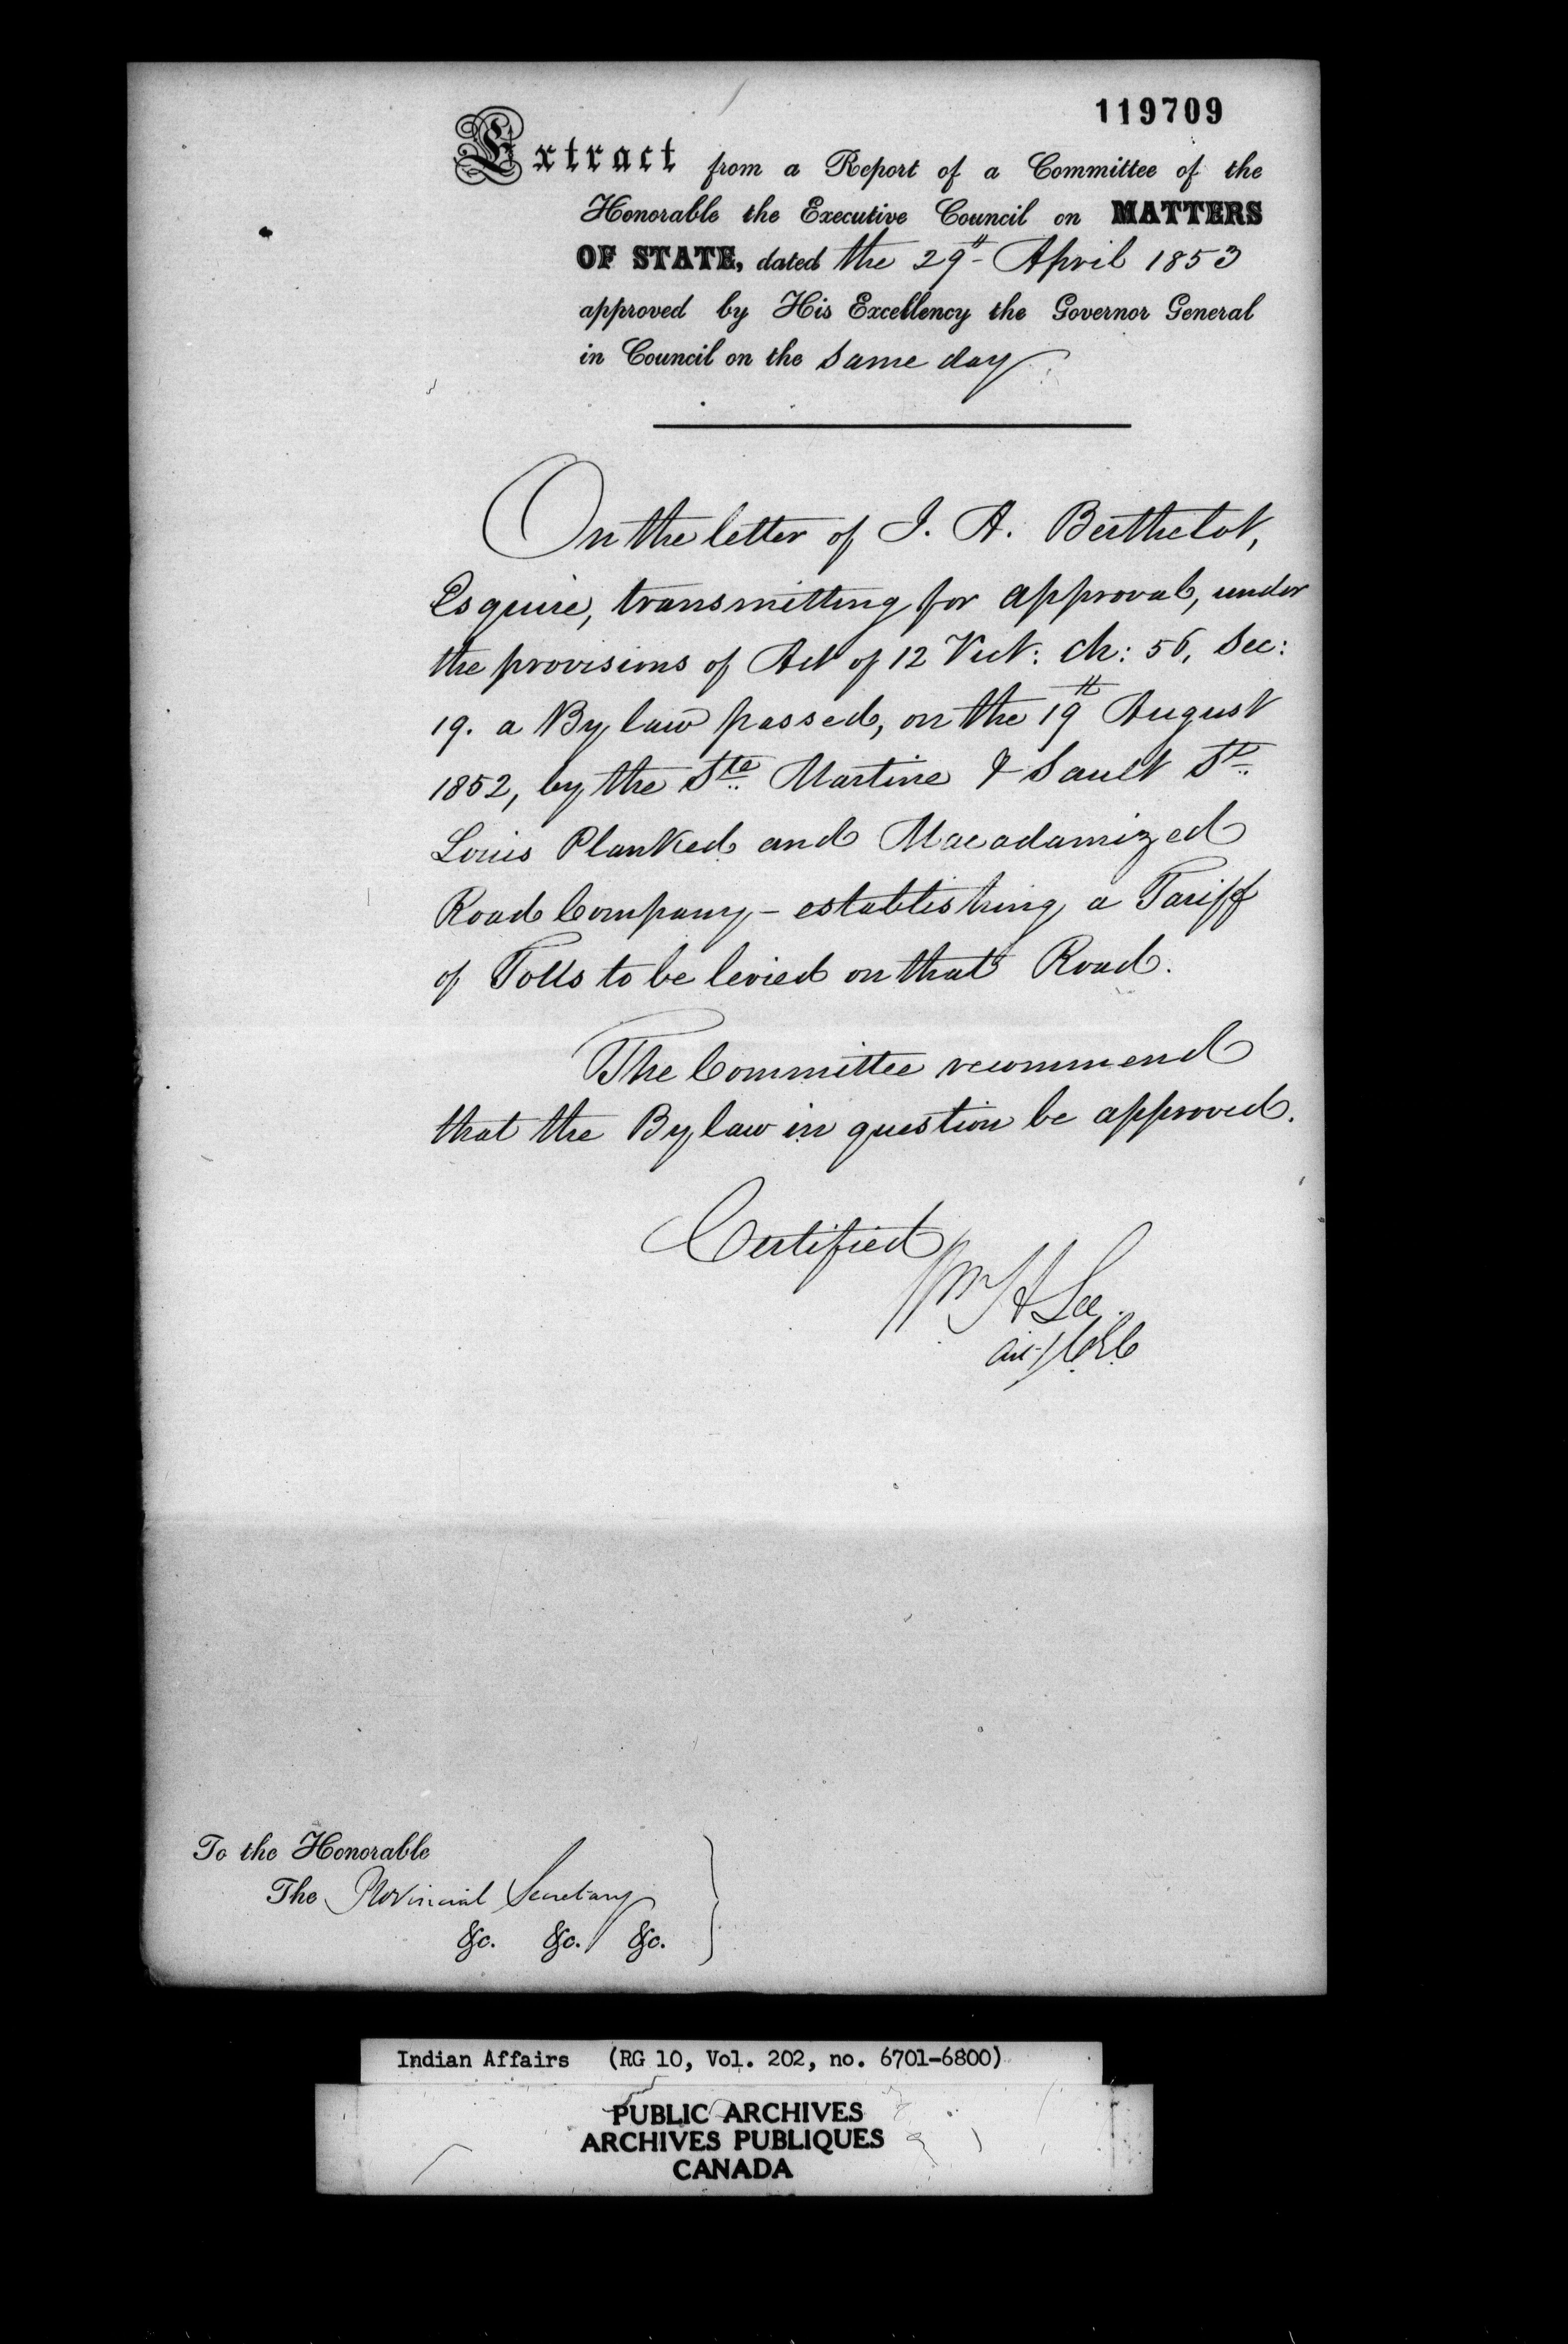 119709
Extract from a Report of a Committee of the
Honorable the Executive Council on MATTERS
OF STATE, dated the 29th April 1853
approved by His Excellency the Governor General
in Council on the same day
On the letter of J. A. Berthelot,
Esquire, transmitting for approval, under
the provisions of Act of 12 Vict: ch: 56, Sec:
19. a By law passed, on the 19th August
1852, by the Ste Martine & Sault St
Louis Planked and Macadamized
Road Company - establishing a Tariff
of Tolls to be levied on that Road.
The Committee recommend
that the By law in question be approved.
Certified
Wm H Lee
C.E.C
To the Honorable
The Provincial Secretary
&c. &c. &c.
Indian Affairs (RG 10, Vol. 202, no. 6701-6800)
PUBLIC ARCHIVES
ARCHIVES PUBLIQUES
CANADA